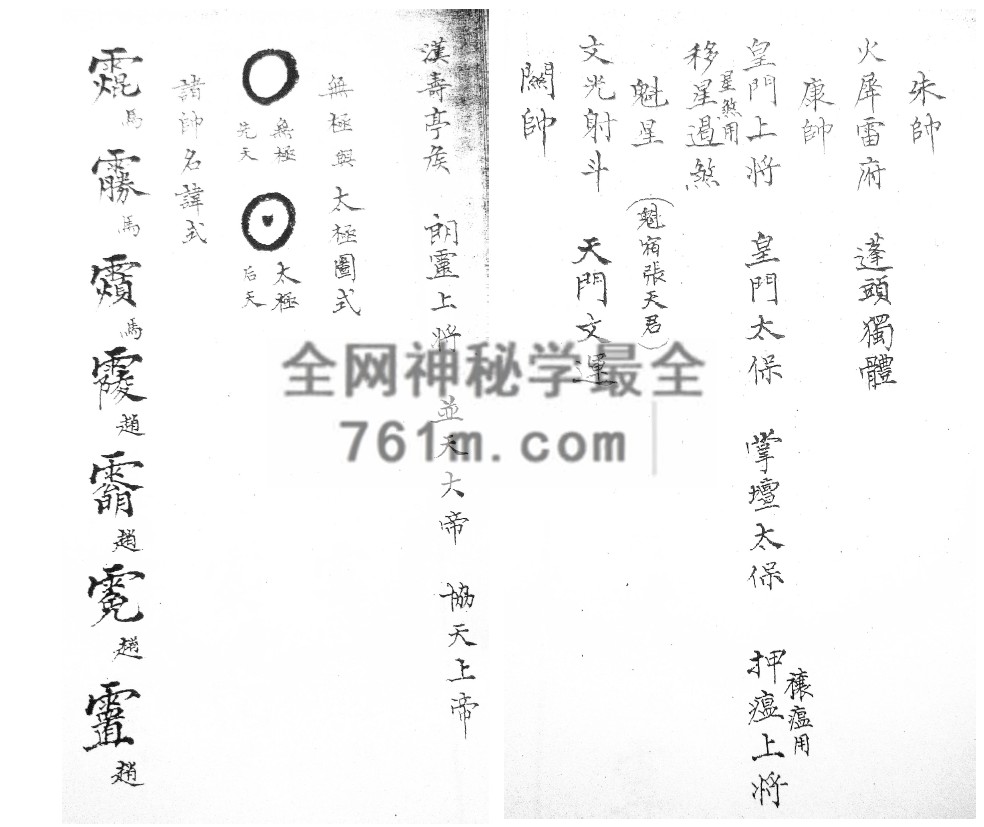 朱帥
火犀雷府 蓬頭獨體
康帥
皇門上將 皇門太保 掌壇太保 押瘟上將
禳瘟用
星煞用
移星過煞
魁星 (魁宿張天君)
文光射斗 天門文運
關帥
漢壽亭侯 朗靈上將 並天大帝 協天上帝
無極與太極圖式
無極
先天
太極
后天
諸帥名諱式
馬
馬
馬
趙
趙
趙
趙
全网神秘学最全
761m.com